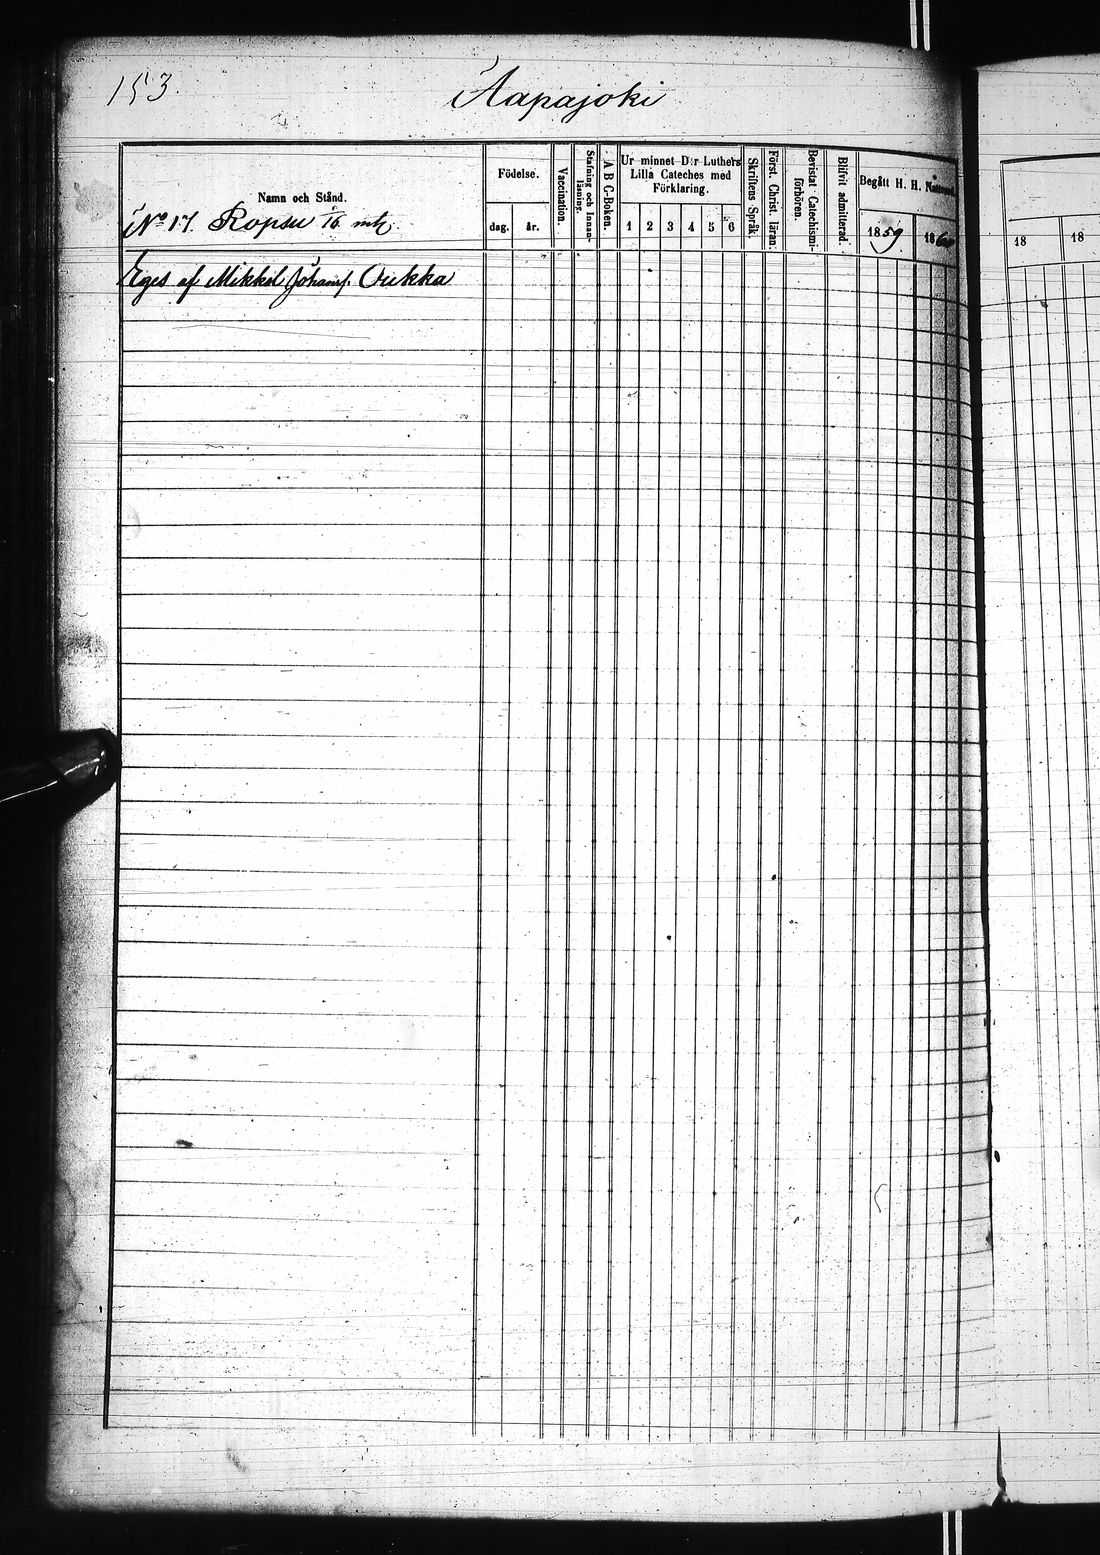 153.
Aapajoki
Namn och Stånd.
Födelse.
dag.
år.
Vaccination.
Stafning och Innan-
läsning.
A B C-Boken.
Ur minnet D:r Luthers
Lilla Cateches med
Förklaring.
1 2 3 4 5 6
Skriftens Språk.
Först. Christ. läran.
Bevistat Catechismi-
förhören.
Blifvit admitterad.
Begått H. H.
1859
1860
18
18
No 17. Ropsu 1/16 mtl
Eges af Mikkel Johanss. Oukka